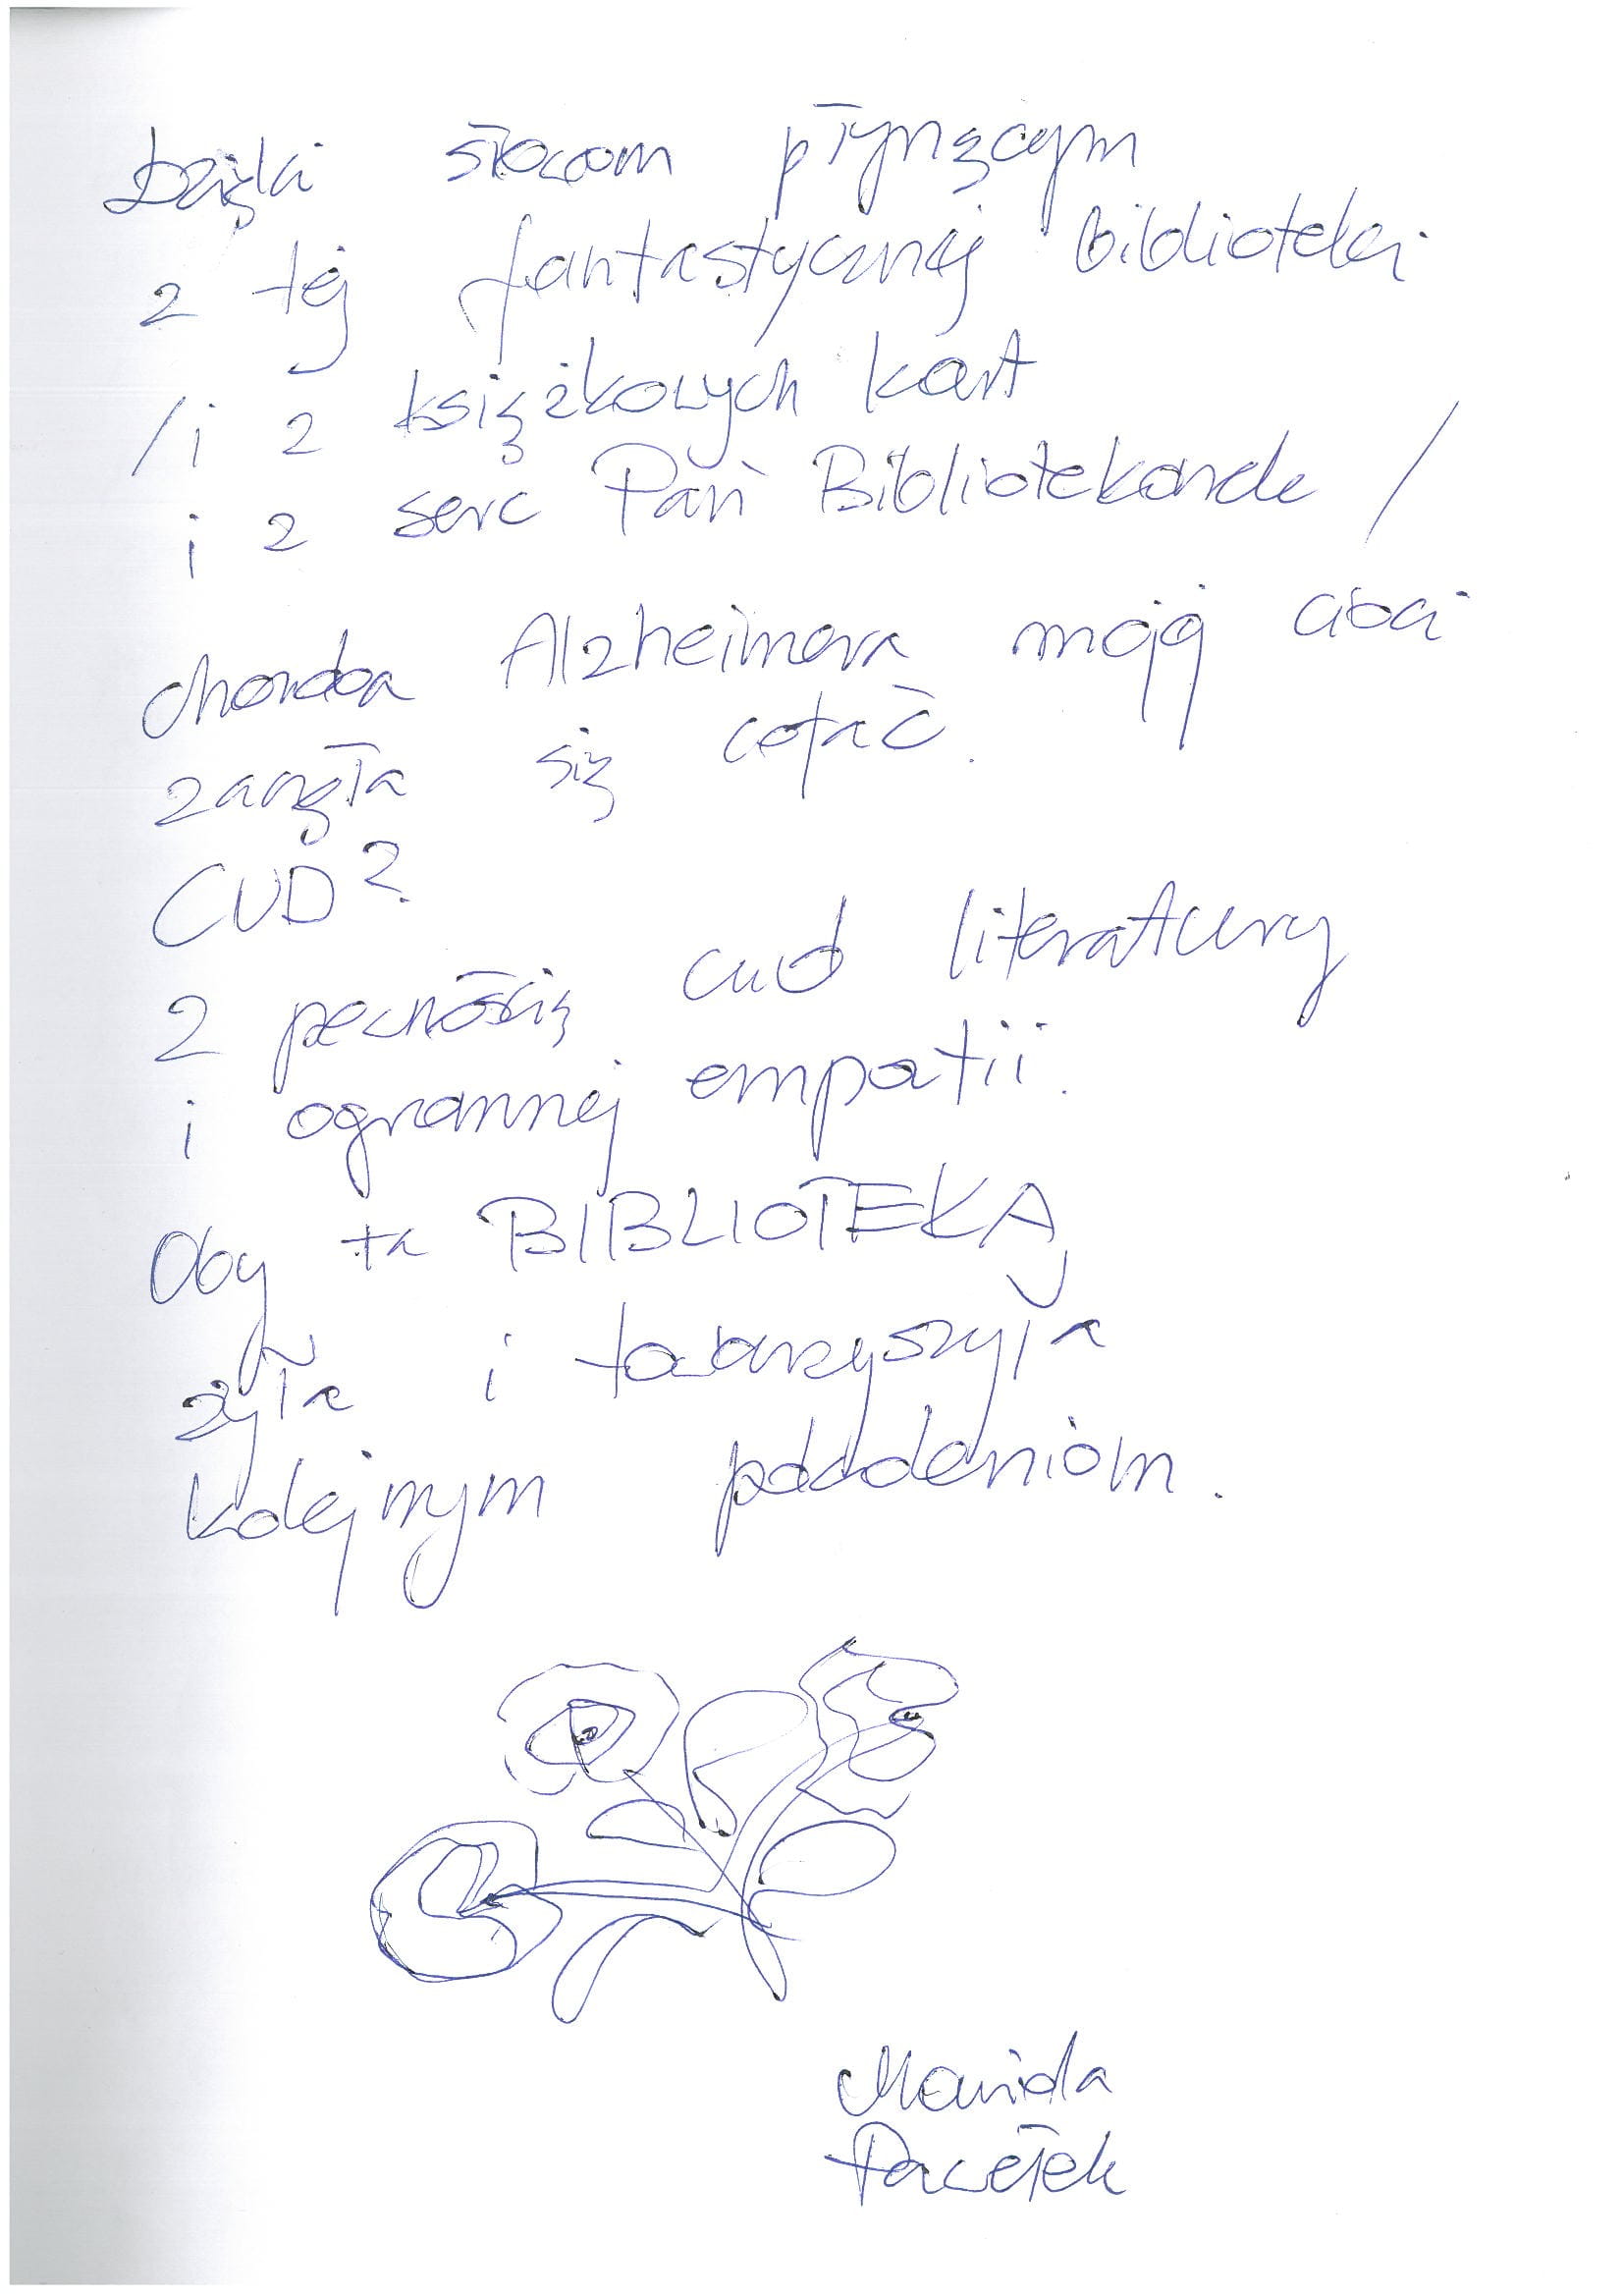 Dzięki słowom płynącym
z tej fantastycznej biblioteki
/i z książkowych kart
i z serc Pań Bibliotekarek/
choroba Alzheimera mojej cioci
zaczęła się cofać.
CUD?
Z pewnością cud literatury
i ogromnej empatii.
Oby ta BIBLIOTEKA
żyła i towarzyszyła
kolejnym pokoleniom.
Pawełek